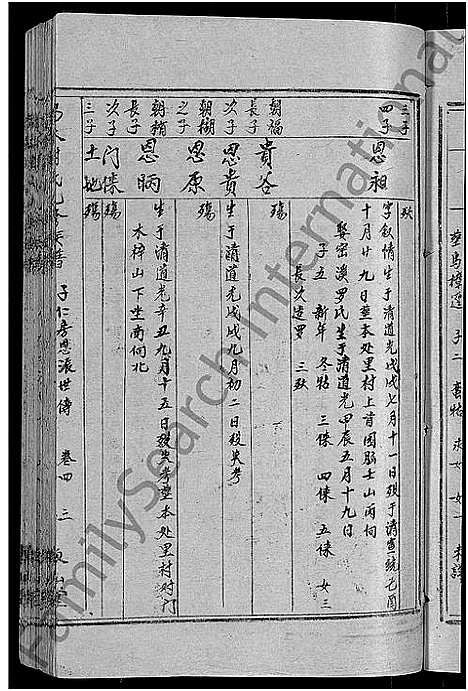 三子
殀
四子
恩祖
字叙情生于清道光戊戌七月十一日殁于清宣统己酉
十月廿九日葬本处里村上首园脑土山丙向
娶密溪罗氏生于清道光甲辰五月十九日
子五 新年 冬牯 三俫 四俫 五俫 女三
长次适罗 三殀
朝福
长子
贵谷
殇
次子
恩贵
生于清道光戊戌九月初二日殁失考
朝楜
之子
恩原
殇
朝稍
长子
恩昞
生于清道光辛丑九月十五日殁失考葬本处里村对门
木梓山下坐南向北
次子
门俫
殇
三子
土地
殇
子仁房恩派世传
卷四
三
子二
FamilySearch International